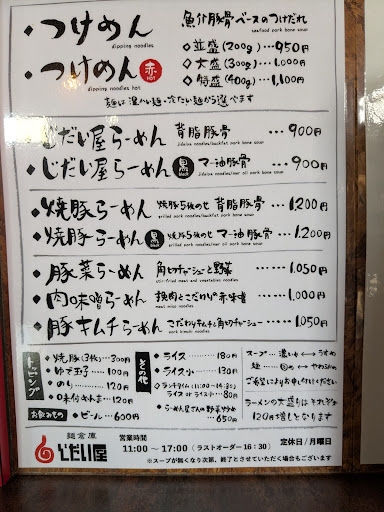 ・つけめん 魚介豚骨ベースのつけだれ
dipping noodles seafood pork bone soup
・つけめん 赤 HOT
dipping noodles hot
◇並盛(200g)…950円
◇大盛(300g)…1,000円
◇特盛(400g)…1,100円
麺は温かい麺・冷たい麺から選べます
・じだい屋らーめん 背脂豚骨 …900円
・じだい屋らーめん 黒 マー油豚骨 …900円
◆焼豚らーめん 焼豚5枚のせ 背脂豚骨 …1,200円
◆焼豚らーめん 黒 焼豚5枚のせ マー油豚骨 …1,200円
◆豚菜らーめん 角切チャーシューと野菜 ……1,050円
stir-fried meat and vegetables noodles
◆肉味噌らーめん 挽肉とこだわり赤味噌 ……1,000円
meat miso noodles
◆豚キムチらーめん こだわりキムチと角切チャーシュー…1,050円
pork kimchi noodles
トッピング
◇焼豚(3枚)…300円
◇ゆで玉子…100円
◇のり……120円
◇味付めんま…120円
お飲みもの
◇ビール…600円
その他
◇ライス……180円
◇ライス小……130円
◇ランチタイム(11:00〜14:30)
ライス or 小ライス…80円
◇らーめん屋さんの野菜炒め
…650円
スープ…濃いめ⟷うすめ
麺…固め⟷やわらかめ
ご希望によりお申し付けください
ラーメンの大盛りはそれぞれ
120円増しとなります
麺倉庫
じだい屋
営業時間
11:00 〜 17:00(ラストオーダー 16:30)
定休日/月曜日
※スープが無くなり次第、終了とさせていただく場合もございます